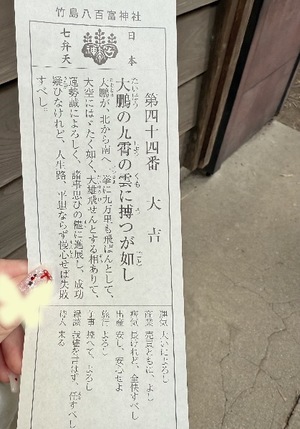 竹島八百富神社
日本
七弁天
第四十四番 大吉
大鵬の九霄の雲に搏つが如し
たいほう
くも
ごと
大鵬が、北から南へ、一挙に九万里も飛ばんとして、
大空にはゞたく如く、大雄飛せんとする相ありて、
運勢誠によろしく、諸事思ひの儘に進展し、成功
疑ひなけれど、人生路、平坦ならず慢心せば失敗
すべし。
運気 大いによろし
商業 売買ともに、よし
病気 長けれど、全快すべし
出産 安し、安心せよ
旅行 よろし
待人 来る